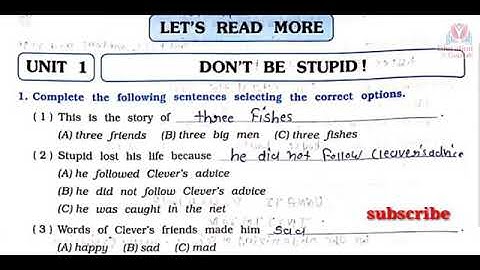 LET'S READ MORE
UNIT 1
DON'T BE STUPID!
1. Complete the following sentences selecting the correct options.
(1) This is the story of three Fishes
(A) three friends (B) three big men (C) three fishes
(2) Stupid lost his life because he did not follow cleaver's advice
(A) he followed Clever's advice
(B) he did not follow Clever's advice
(C) he was caught in the net
subscribe
(3) Words of Clever's friends made him Sad
(A) happy (B) sad (C) mad